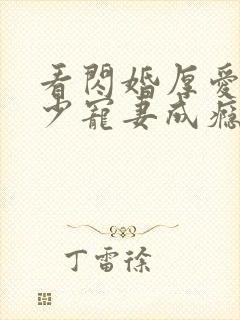 看闪婚厚爱
少宠妻成瘾
丁雷徐